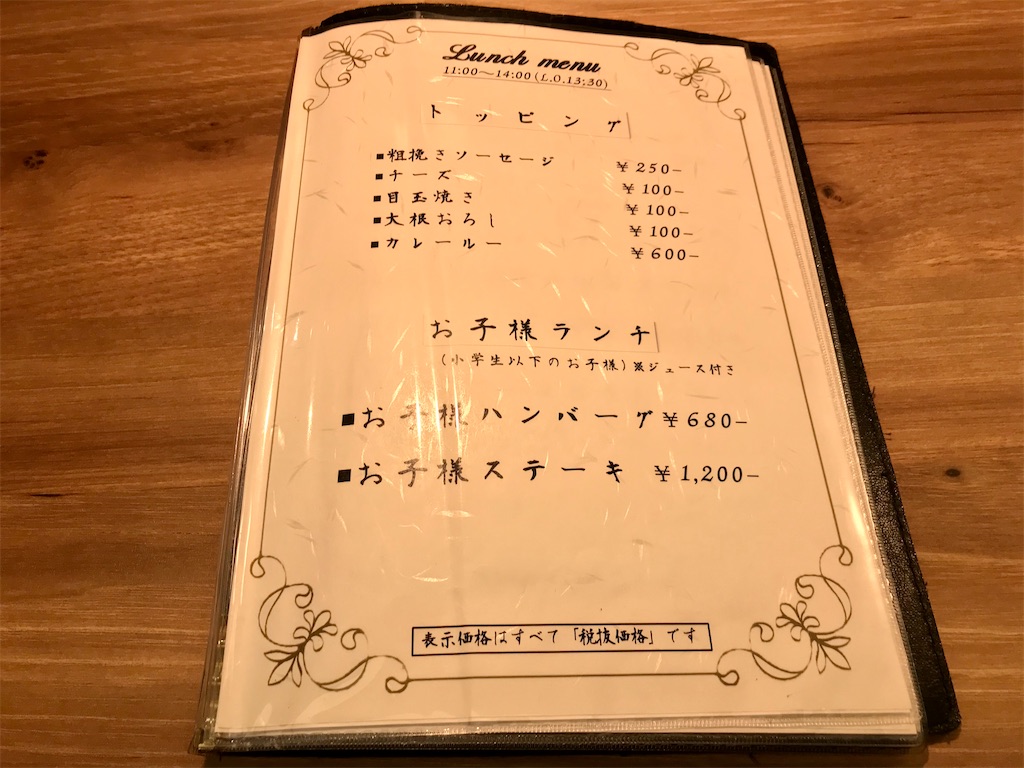 Lunch menu
11:00～14:00(L.O.13:30)
トッピング
■粗挽きソーセージ ￥250−
■チーズ ￥100−
■目玉焼き ￥100−
■大根おろし ￥100−
■カレールー ￥600−
お子様ランチ
(小学生以下のお子様)※ジュース付き
■お子様ハンバーグ￥680−
■お子様ステーキ ￥1,200−
表示価格はすべて「税抜価格」です